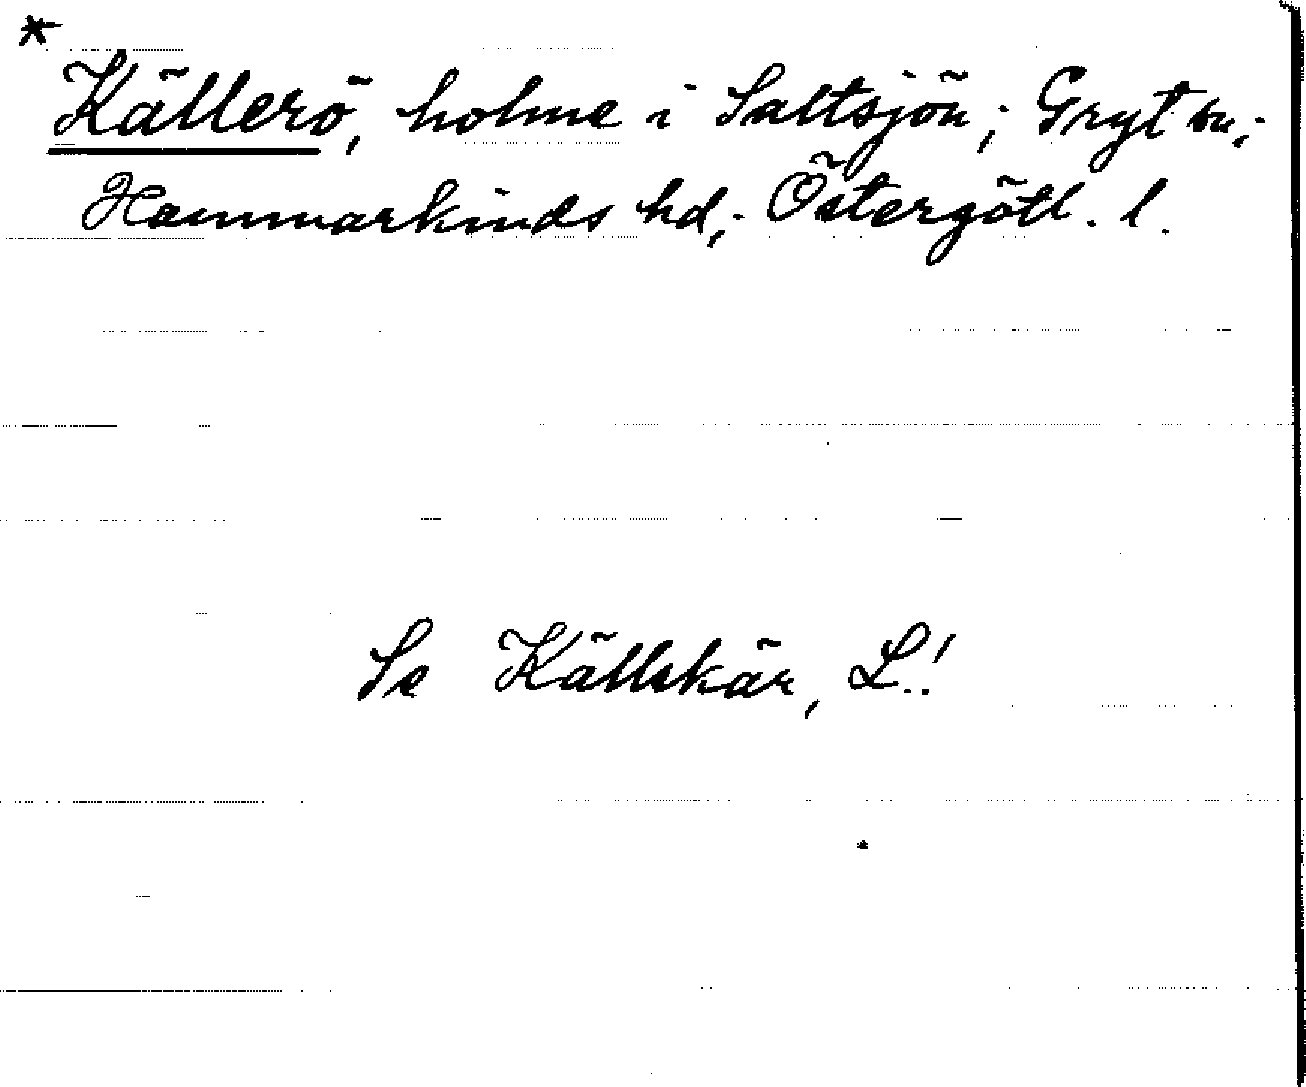 *
Källerö, holme i Saltsjön; Gryt sn;
Hammarkinds hd; Östergötl. l.
Se Källskär, L.!